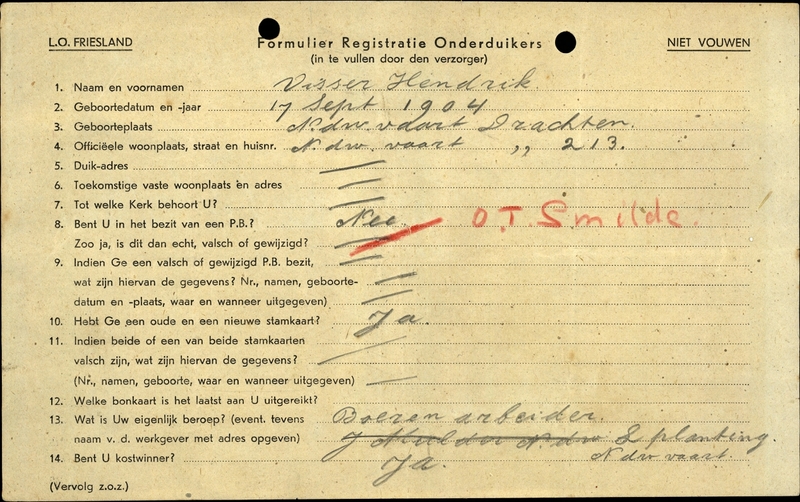 L.O. FRIESLAND
Formulier Registratie Onderduikers
NIET VOUWEN
(in te vullen door den verzorger)
1. Naam en voornamen Visser Hendrik.
2. Geboortedatum en -jaar 17 Sept 1904
3. Geboorteplaats N. dw. vaart Drachten.
4. Officiëele woonplaats, straat en huisnr. N dw. vaart ,, 213.
5. Duik-adres —
6. Toekomstige vaste woonplaats en adres —
7. Tot welke Kerk behoort U? —
8. Bent U in het bezit van een P.B.? Nee. O.T. Smilde.
Zoo ja, is dit dan echt, valsch of gewijzigd? —
9. Indien Ge een valsch of gewijzigd P.B. bezit, —
wat zijn hiervan de gegevens? Nr., namen, geboorte- —
datum en -plaats, waar en wanneer uitgegeven) —
10. Hebt Ge een oude en een nieuwe stamkaart? Ja.
11. Indien beide of een van beide stamkaarten
valsch zijn, wat zijn hiervan de gegevens? —
(Nr., namen, geboorte, waar en wanneer uitgegeven) —
12. Welke bonkaart is het laatst aan U uitgereikt?
13. Wat is Uw eigenlijk beroep? (event. tevens Boeren arbeider.
naam v. d. werkgever met adres opgeven) J Mulder N dw S planting.
14. Bent U kostwinner? Ja. N dw vaart.
(Vervolg z.o.z.)